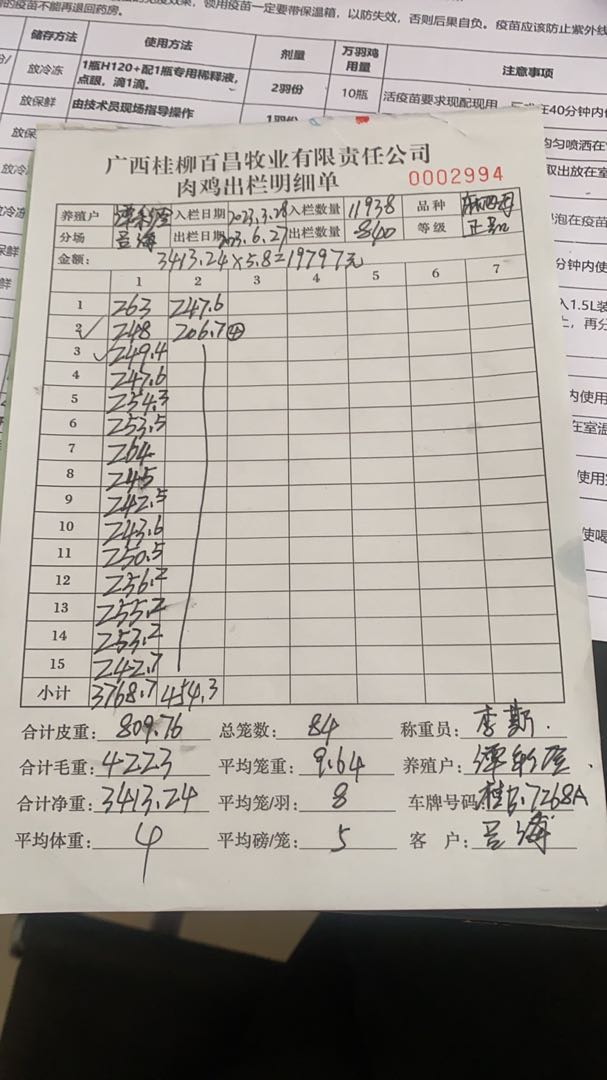 的疫苗不能再退回药房。
领用疫苗一定要带保温箱，以防失效，否则后果自负。疫苗应该防止紫外线
储存方法 使用方法 剂量 万羽鸡用量 注意事项
放冷冻 1瓶H120+配1瓶专用稀释液，点眼，滴1滴。 2羽份 10瓶 活疫苗要求现配现用
在40分钟内
放保鲜 由技术员现场指导操作 1羽份
均匀喷洒在
广西桂柳百昌牧业有限责任公司
肉鸡出栏明细单 0002994
养殖户 入栏日期 2023.3.28 入栏数量 11938 品种
分场 吕海 出栏日期 2023.6.27 出栏数量 840 等级 正品
金额： 3413.24×5.8=19797元
1 2 3 4 5 6 7
1 263 247.6
2 248 206.7④
3 249.4
4 247.6
5 254.3
6 253.5
7 264
8 245
9 242.5
10 243.6
11 250.5
12 256.2
13 255.2
14 253.2
15 242.7
小计 3768.7 454.3
合计皮重： 809.76 总笼数： 84 称重员： 李斯
合计毛重： 4223 平均笼重： 9.64 养殖户：
合计净重： 3413.24 平均笼/羽： 8 车牌号码： 桂B.7268A
平均体重： 4 平均磅/笼： 5 客 户： 吕海